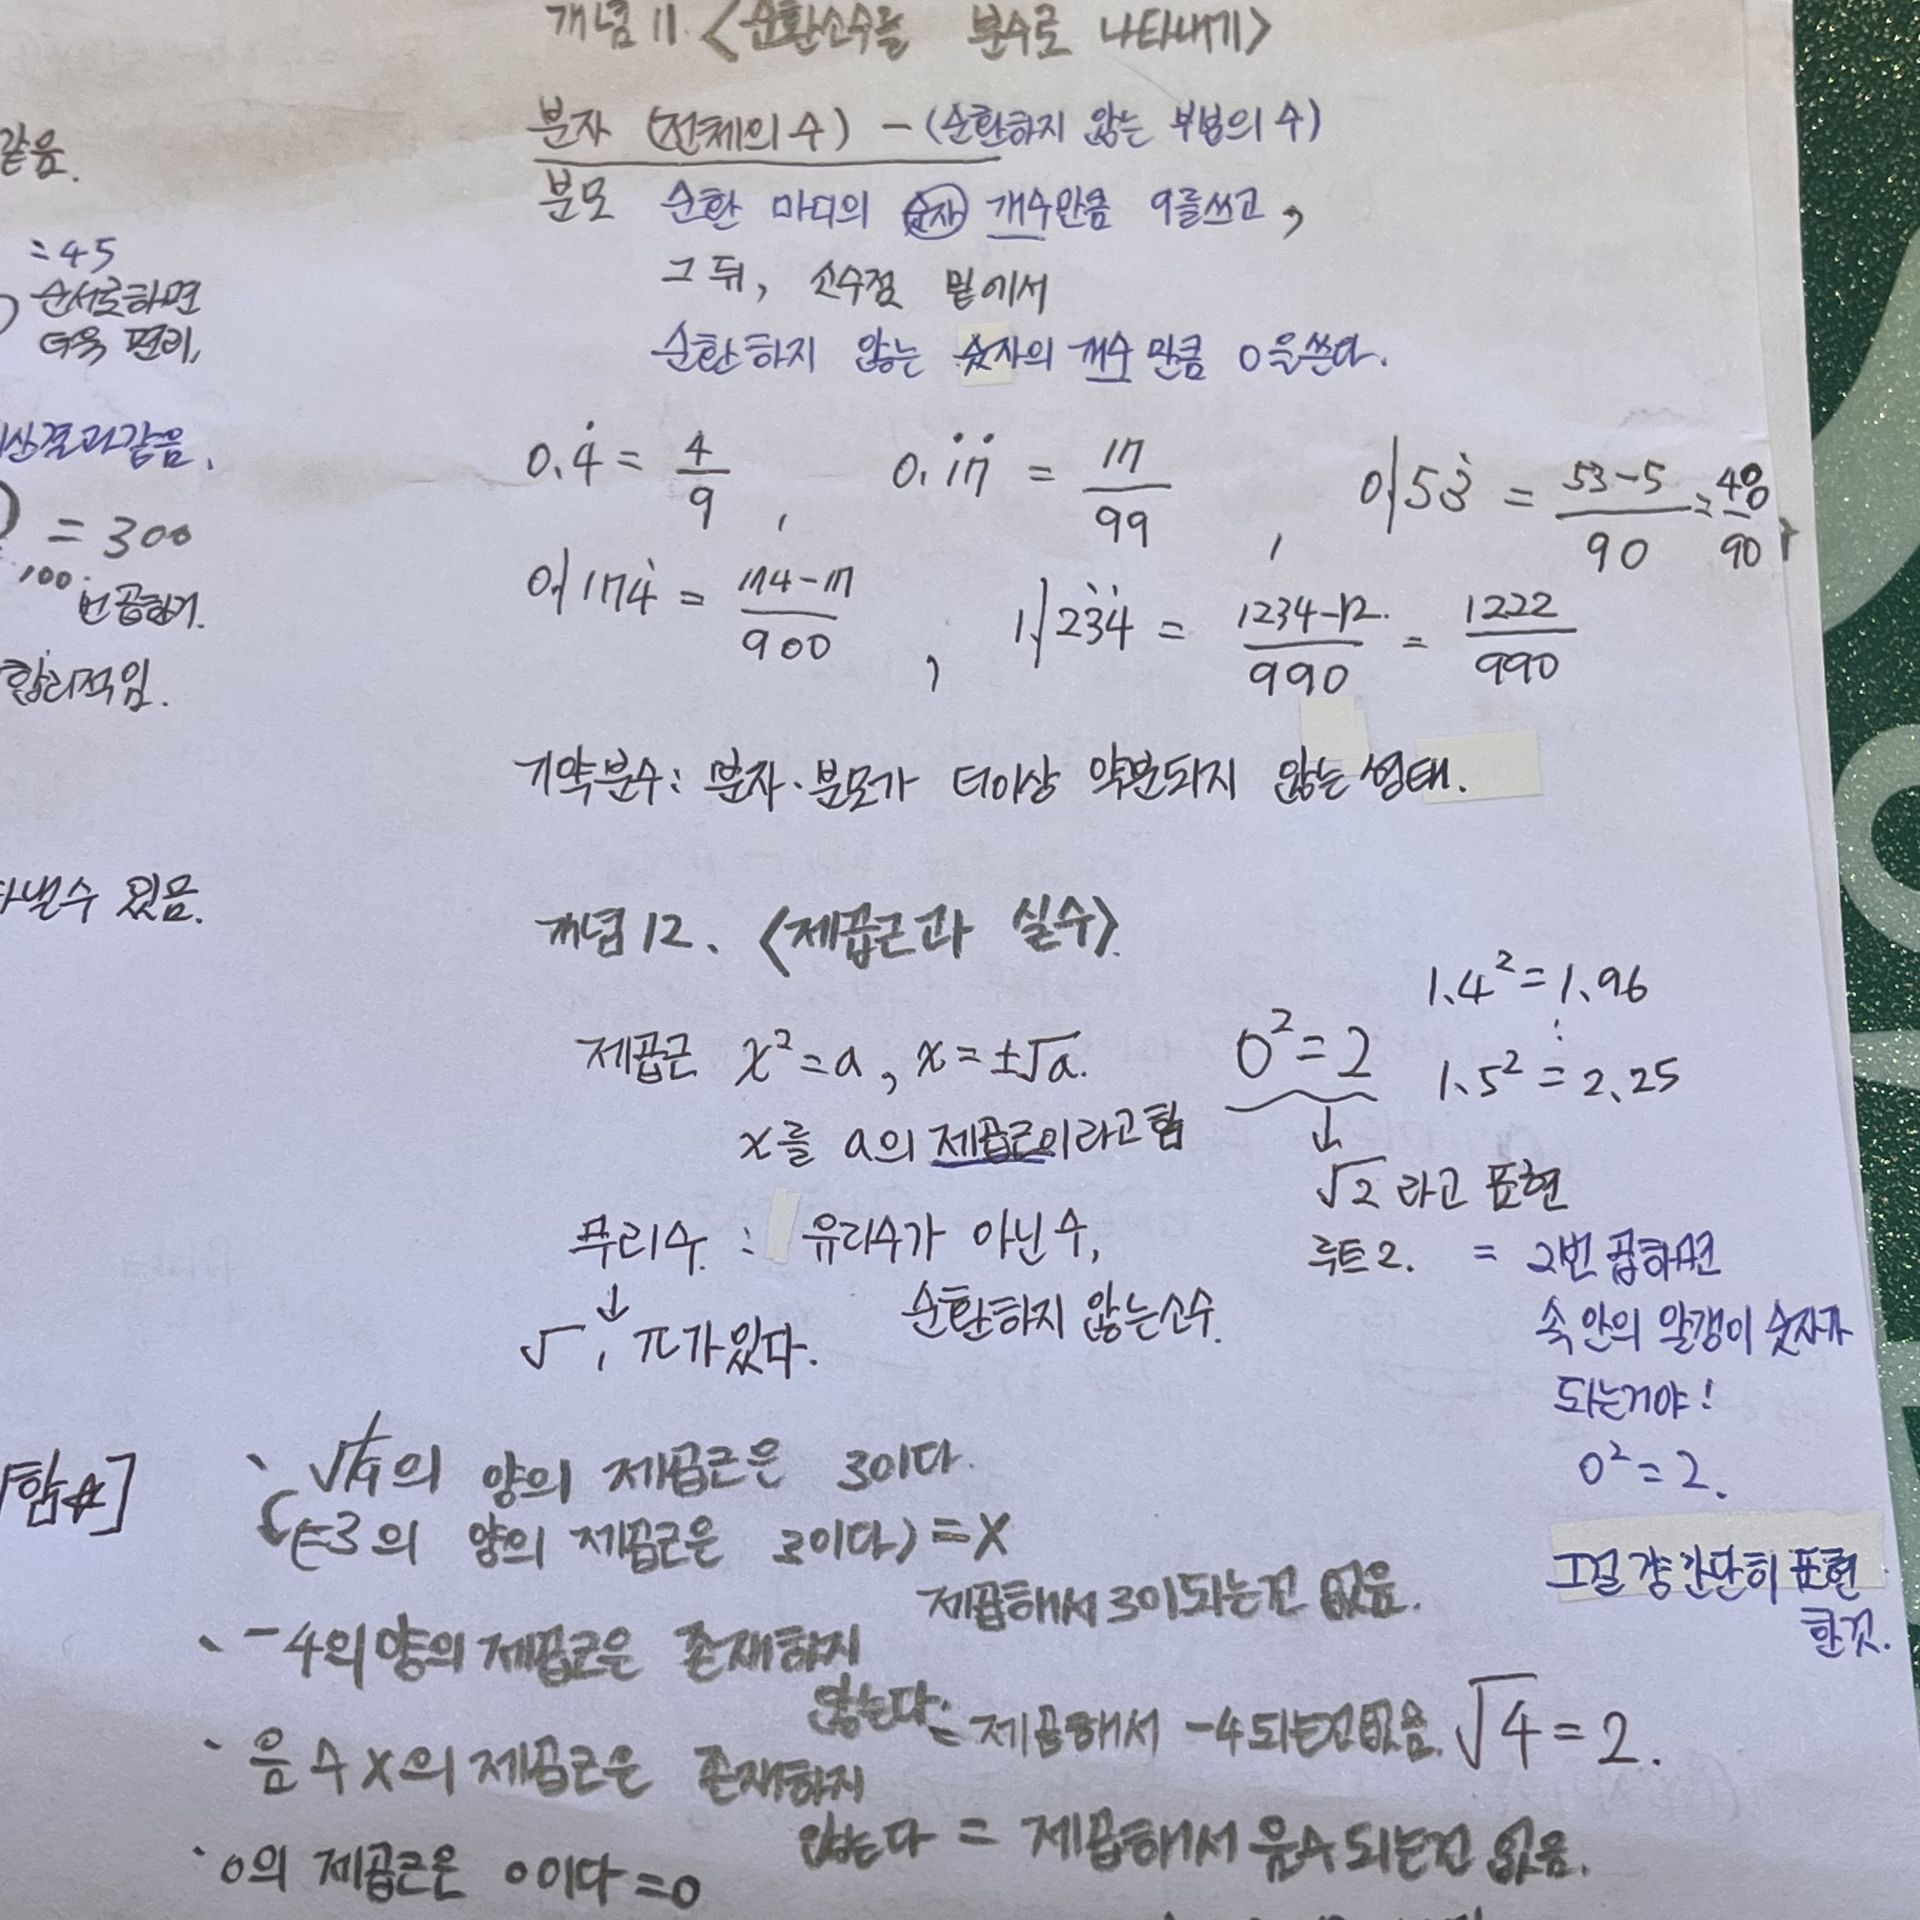 개념 11. <순환소수를 분수로 나타내기>
분자 (전체의 수) - (순환하지 않는 부분의 수)
분모 순환 마디의 숫자 개수만큼 9를쓰고,
그 뒤, 소수점 밑에서
순환하지 않는 숫자의 개수 만큼 0을쓴다.
0.4̇ = 4/9 , 0.1̇7̇ = 17/99 , 0.53̇ = 53-5/90 = 48/90
0.174̇ = 174-17/900 , 1.23̇4̇ = 1234-12/990 = 1222/990
기약분수: 분자·분모가 더이상 약분되지 않는 형태.
같음.
=45
순서로하면
더욱 편리,
산결과같음.
=300
100번 곱하기.
합리적임.
낼수 있음.
개념 12. <제곱근과 실수>
제곱근 x²=a, x=±√a.
x를 a의 제곱근이라고 함
0²=2
1.4²=1.96
:
1.5²=2.25
↓
√2 라고 표현
루트2. = 2번 곱하면
속 안의 알갱이 숫자가
되는거야!
0²=2.
그걸 걍 간단히 표현
한것.
무리수 : 유리수가 아닌 수,
순환하지 않는소수.
↓
√, π가있다.
함수]
· √9의 양의 제곱근은 3이다.
(=3의 양의 제곱근은 3이다)=X
제곱해서 3이되는건 없음.
· -4의 양의 제곱근은 존재하지
않는다. = 제곱해서 -4되는건없음. √4=2.
· 음수 x의 제곱근은 존재하지
않는다 = 제곱해서 음수되는건 없음.
· 0의 제곱근은 0이다 =0